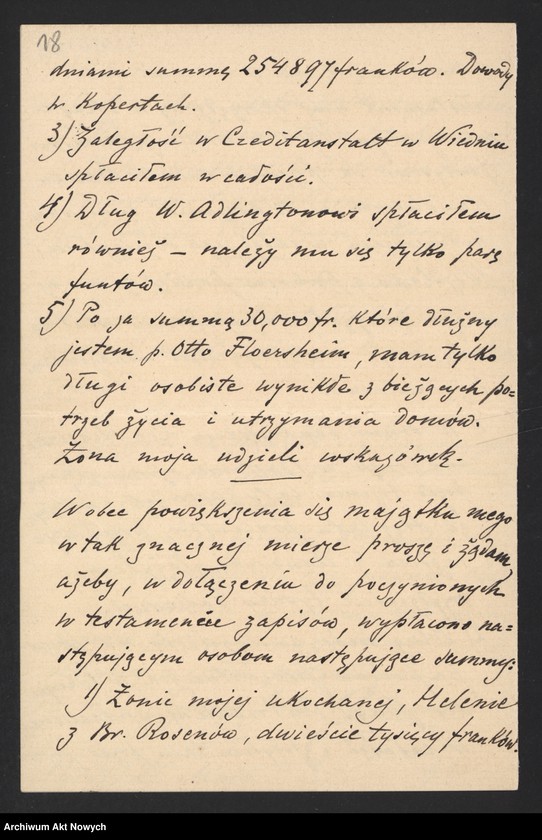 18
dniami summę 254897 franków. Dowody
w Kopertach.
3) Zaległość w Creditanstalt w Wiedniu
spłaciłem w całości.
4) Dług W. Adlingtonowi spłaciłem
również – należy mu się tylko parę
funtów.
5) Po za summą 30,000 fr. które dłużny
jestem p. Otto Floersheim, mam tylko
długi osobiste wynikłe z bieżących po=
trzeb życia i utrzymania domów.
Żona moja udzieli wskazówek.
Wobec powiększenia się majątku mego
w tak znacznej mierze proszę i żądam
ażeby, w dołączeniu do poczynionych
w testamencie zapisów, wypłacono na=
stępującym osobom następujące summy:
1) Żonie mojej ukochanej, Helenie
z Br. Rosenów, dwieście tysięcy franków.
Archiwum Akt Nowych